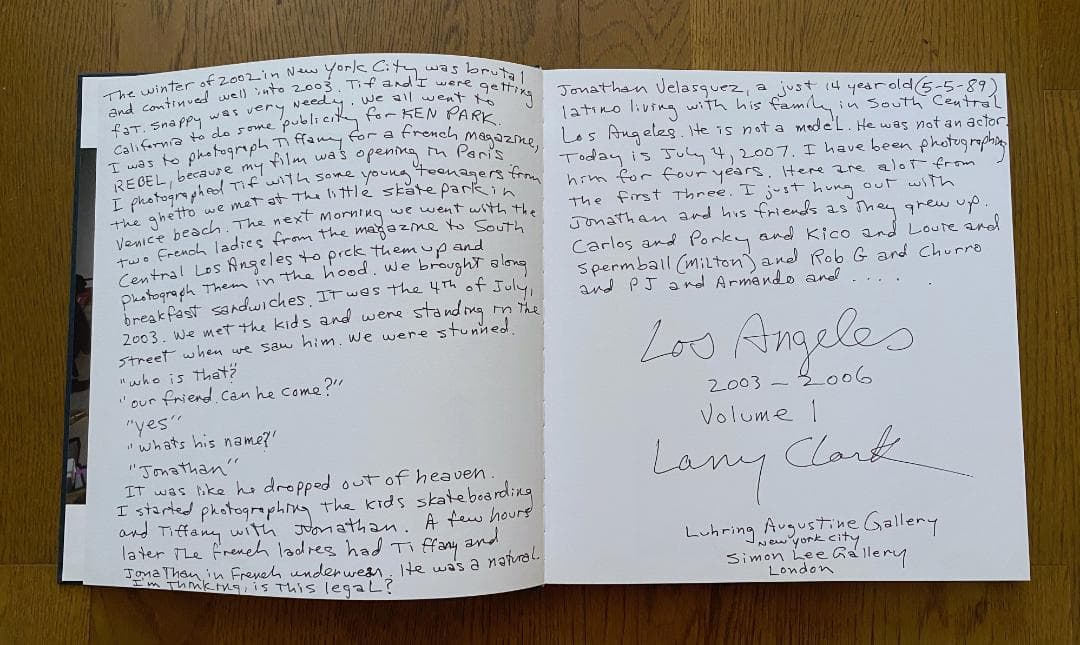 The winter of 2002 in New York City was brutal
and continued well into 2003. Tif and I were getting
fat. Snappy was very needy. We all went to
California to do some publicity for KEN PARK.
I was to photograph Tiffany for a french magazine,
REBEL, because my film was opening in Paris
I photographed Tif with some young teenagers from
the ghetto we met at the little skate park in
Venice beach. The next morning we went with the
two French ladies from the magazine to South
Central Los Angeles to pick them up and
photograph them in the hood. We brought along
breakfast sandwiches. It was the 4th of July,
2003. We met the kids and were standing in the
street when we saw him. We were stunned.
"who is that?
"our friend. can he come?"
"yes"
"whats his name?"
"Jonathan"
IT was like he dropped out of heaven.
I started photographing the kids skateboarding
and Tiffany with Jonathan. A few hours
later the French ladies had Tiffany and
Jonathan in French underwear. He was a natural.
I'm Thinking, is this legal?
Jonathan Velasquez, a just 14 year old (5-5-89)
latino living with his family in South Central
Los Angeles. He is not a model. He was not an actor.
Today is July 4, 2007. I have been photographing
him for four years. Here are alot from
the first three. I just hung out with
Jonathan and his friends as they grew up.
Carlos and Porky and Kico and Louie and
Spermball (Milton) and Rob G and Churro
and PJ and Armando and . . . . .
Los Angeles
2003 – 2006
Volume 1
Larry Clark
Luhring Augustine Gallery
New York City
Simon Lee Gallery
London